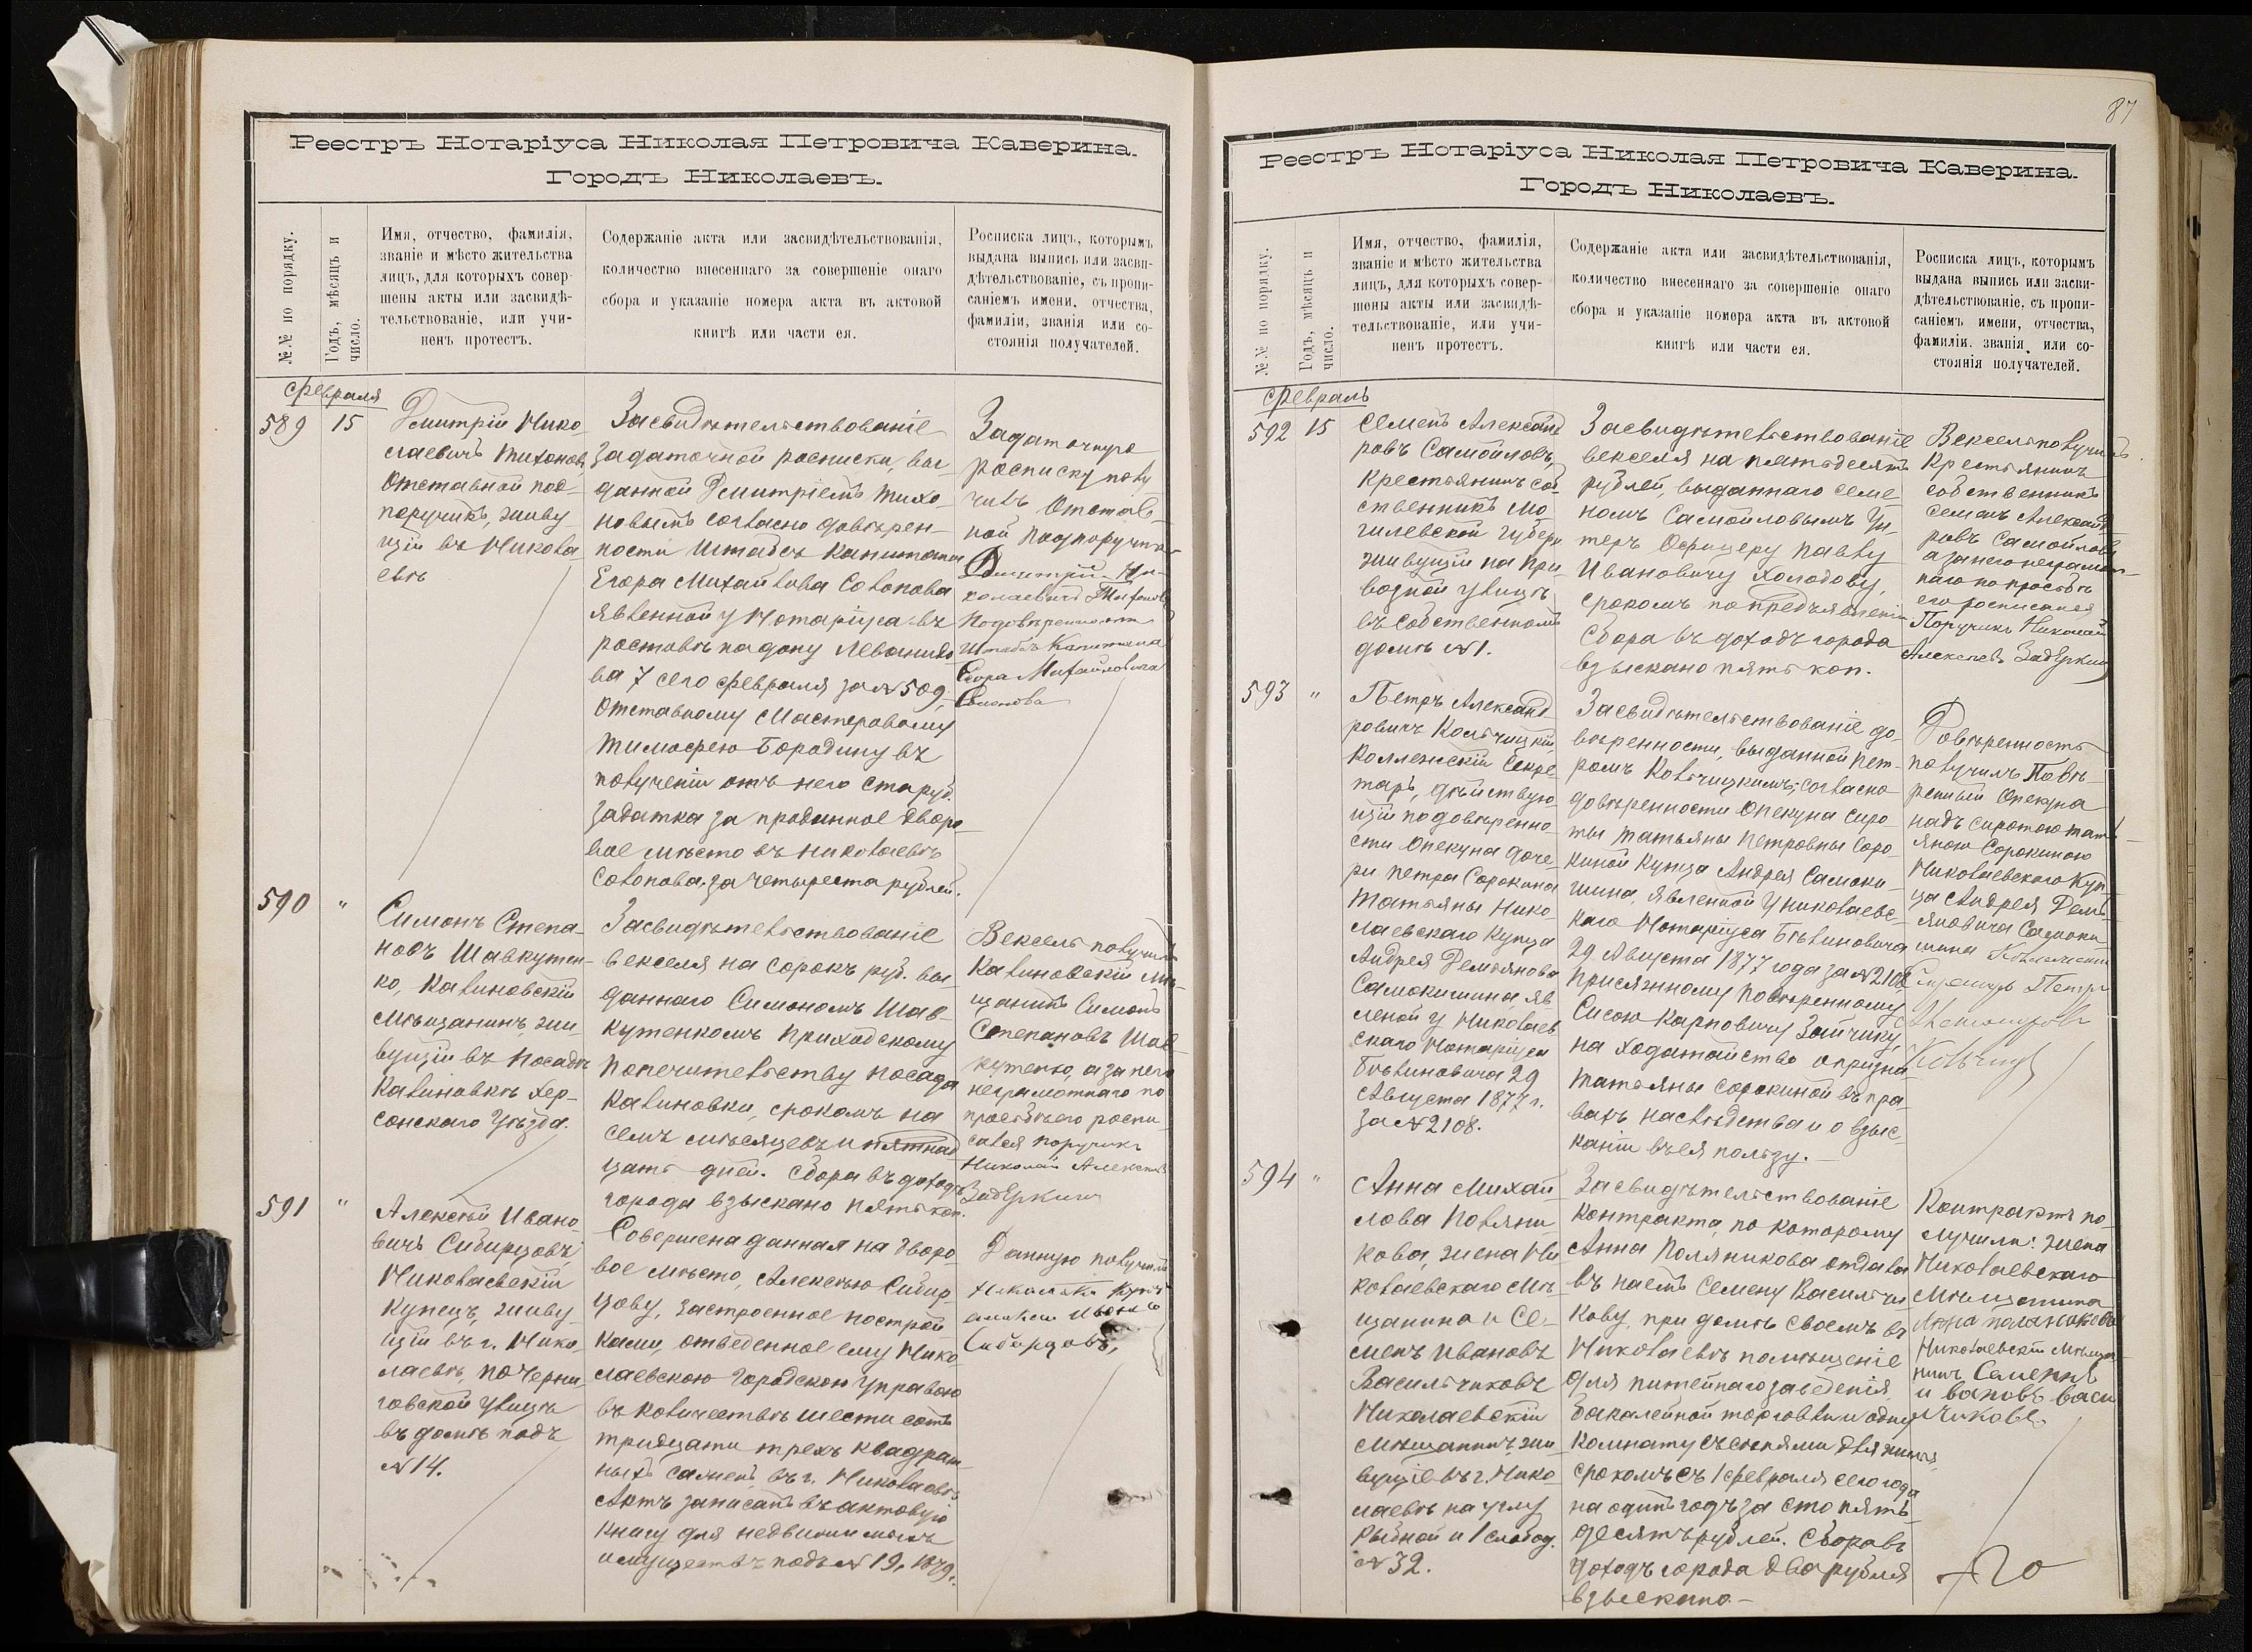 Реестръ Нотаріуса Николая Петровича Каверина.
Городъ Николаевъ.
№№ по порядку.
Годъ, мѣсяцъ и
число.
Имя, отчество, фамилія,
званіе и мѣсто жительства
лицъ, для которыхъ совер-
шены акты или засвидѣ-
тельствованіе, или учи-
ненъ протестъ.
Содержаніе акта или засвидѣтельствованія,
количество внесеннаго за совершеніе онаго
сбора и указаніе номера акта въ актовой
книгѣ или части ея.
Росписка лицъ, которымъ
выдана выпись или засви-
дѣтельствованіе, съ пропи-
саніемъ имени, отчества,
фамиліи, званія или со-
стоянія получателей.
Февраля
589
15
Дмитрій Нико
лаевичъ Тихоновъ
Отставной под-
поручикъ, живу
щій въ Никола
евѣ
Засвидѣтельствованіе
задаточной росписки, вы-
данной Дмитріемъ Тихо
новымъ согласно довѣрен-
ности Штабсъ Капитана
Егора Михайлова Солонова
явленной у Нотаріуса въ
Ростовѣ на дону Левандо
ва 7 сего февраля за №509,
Отставному Мастеровому
Тимофею Бородину въ
полученіи отъ него сто руб.
задатка за проданное дворо-
вое мѣсто въ Николаевѣ
Солонова за четыреста рублей.
Задаточную
росписку полу
чилъ Отстав-
ной Подпоручикъ
Дмитрій Ни-
колаевичъ Тихоновъ
По довѣренности
Штабсъ Капитана
Егора Михайловича
Солонова
590
"
Симонъ Степа-
новъ Шавкутен-
ко, Калиновскій
мѣщанинъ, жи-
вущій въ посадѣ
Калиновкѣ Хер-
сонскаго Уѣзда.
Засвидѣтельствованіе
векселя на сорокъ руб. вы
даннаго Симономъ Шав-
кутенкомъ Приходскому
Попечительству посада
Калиновки, срокомъ на
семь мѣсяцевъ и пятнад
цать дней. Сбора въ доходъ
города взыскано пять коп.
Вексель получилъ
Калиновскій мѣ-
щанинъ Симонъ
Степановъ Шав-
кутенко, а за него
неграмотнаго по
просьбѣ его роспи-
сался поручикъ
Николай Алексѣевъ
Задеркій
591
"
Алексѣй Ивано
вичъ Сибирцовъ,
Николаевскій
купецъ, живу
щій въ г. Нико
лаевѣ, по Черни
говской улицѣ
въ домѣ подъ
№14.
Совершена данная на дворо
вое мѣсто, Алексѣю Сибир-
цову, застроенное построй
ками, отведенное ему Нико
лаевскою Городскою Управою
въ количествѣ шести сотъ
тридцати трехъ квадрат-
ныхъ сажень, въ г. Николаевѣ
Актъ записанъ въ актовую
книгу для недвижимыхъ
имуществъ подъ №19, 1879г.
Данную получилъ
Сибирцовъ,
87
Реестръ Нотаріуса Николая Петровича Каверина.
Городъ Николаевъ.
№№ по порядку.
Годъ, мѣсяцъ и
число.
Имя, отчество, фамилія,
званіе и мѣсто жительства
лицъ, для которыхъ совер-
шены акты или засвидѣ-
тельствованіе, или учи-
ненъ протестъ.
Содержаніе акта или засвидѣтельствованія,
количество внесеннаго за совершеніе онаго
сбора и указаніе номера акта въ актовой
книгѣ или части ея.
Росписка лицъ, которымъ
выдана выпись или засви-
дѣтельствованіе, съ пропи-
саніемъ имени, отчества,
фамиліи, званія или со-
стоянія получателей.
Февраль
592
15
Семенъ Александ
ровъ Самойловъ,
Крестьянинъ соб
ственникъ Мо
гилевской губерн
живущій на При
водной улицѣ
въ собственномъ
домѣ №1.
Засвидѣтельствованіе
векселя на пятьдесятъ
рублей, выданнаго Семе
номъ Самойловымъ Ун
теръ Офицеру Павлу
Ивановичу Холодову,
срокомъ по предъявленіи
Сбора въ доходъ города
взыскано пять коп.
Вексель получилъ
Крестьянинъ
собственникъ
Семенъ Александ
ровъ Самойловъ
а за него неграмот-
наго по просьбѣ
его росписался
Поручикъ Николай
Алексѣевъ Задеркій
593
"
Петръ Александ
ровичъ Кольчицкій
Коллежскій Секре
тарь, дѣйствую
щій по довѣренно
сти Опекуна доче
ри Петра Сорокина
Татьяны Нико
лаевскаго купца
Андрея Демьянова
Самокишина яв
леной у Николаев
скаго Нотаріуса
Бѣлиновича 29
Августа 1877 г.
за №2108.
Засвидѣтельствованіе до-
вѣренности, выданной Пет-
ромъ Кольчицкимъ, согласно
довѣренности Опекуна сиро-
ты Татьяны Петровны Соро-
киной купца Андрея Самоки-
шина, явленной у Николаевс-
каго Нотаріуса Бѣлиновича
29 Августа 1877 года за №2108
Присяжному Повѣренному
Сысою Карповичу Зайчику,
на ходатайство о призна
Татьяны Сорокиной въ пра-
вахъ наслѣдства и о взыс-
каніи въ ея пользу.
Довѣренность
получилъ Повѣ-
ренный Опекуна
надъ сиротою Тать-
яною Сорокиною
Николаевскаго Куп-
ца Андрея Демь-
яновича Самоки-
шина Коллежскій
Секретарь Петръ
Александровъ
594
"
Анна Михай
лова Поляни
кова, жена Ни
колаевскаго Мѣ
щанина и Се-
менъ Ивановъ
Васильчиковъ
Николаевскій
мѣщанинъ, жи
вущіе въ г. Нико
лаевѣ на углу
Рыбной и 1 слобод.
№32.
Засвидѣтельствованіе
контракта, по которому
Анна Поляникова отдала
въ наемъ Семену Васильчи
кову, при домѣ своемъ въ
Николаевѣ помѣщеніе
для питейнаго заведенія,
бакалейной торговли и одну
комнату съ сѣнями для жилья,
срокомъ съ 1 февраля сего года
на одинъ годъ за сто пять-
десятъ рублей. Сбора въ
доходъ города два рубля
взыскано –
Контрактъ по-
лучили: жена
Николаевскаго
Мѣщанина
Анна Поланикова
Николаевскій Мѣща
нинъ Семенъ
Ивановъ Васи
чиковъ